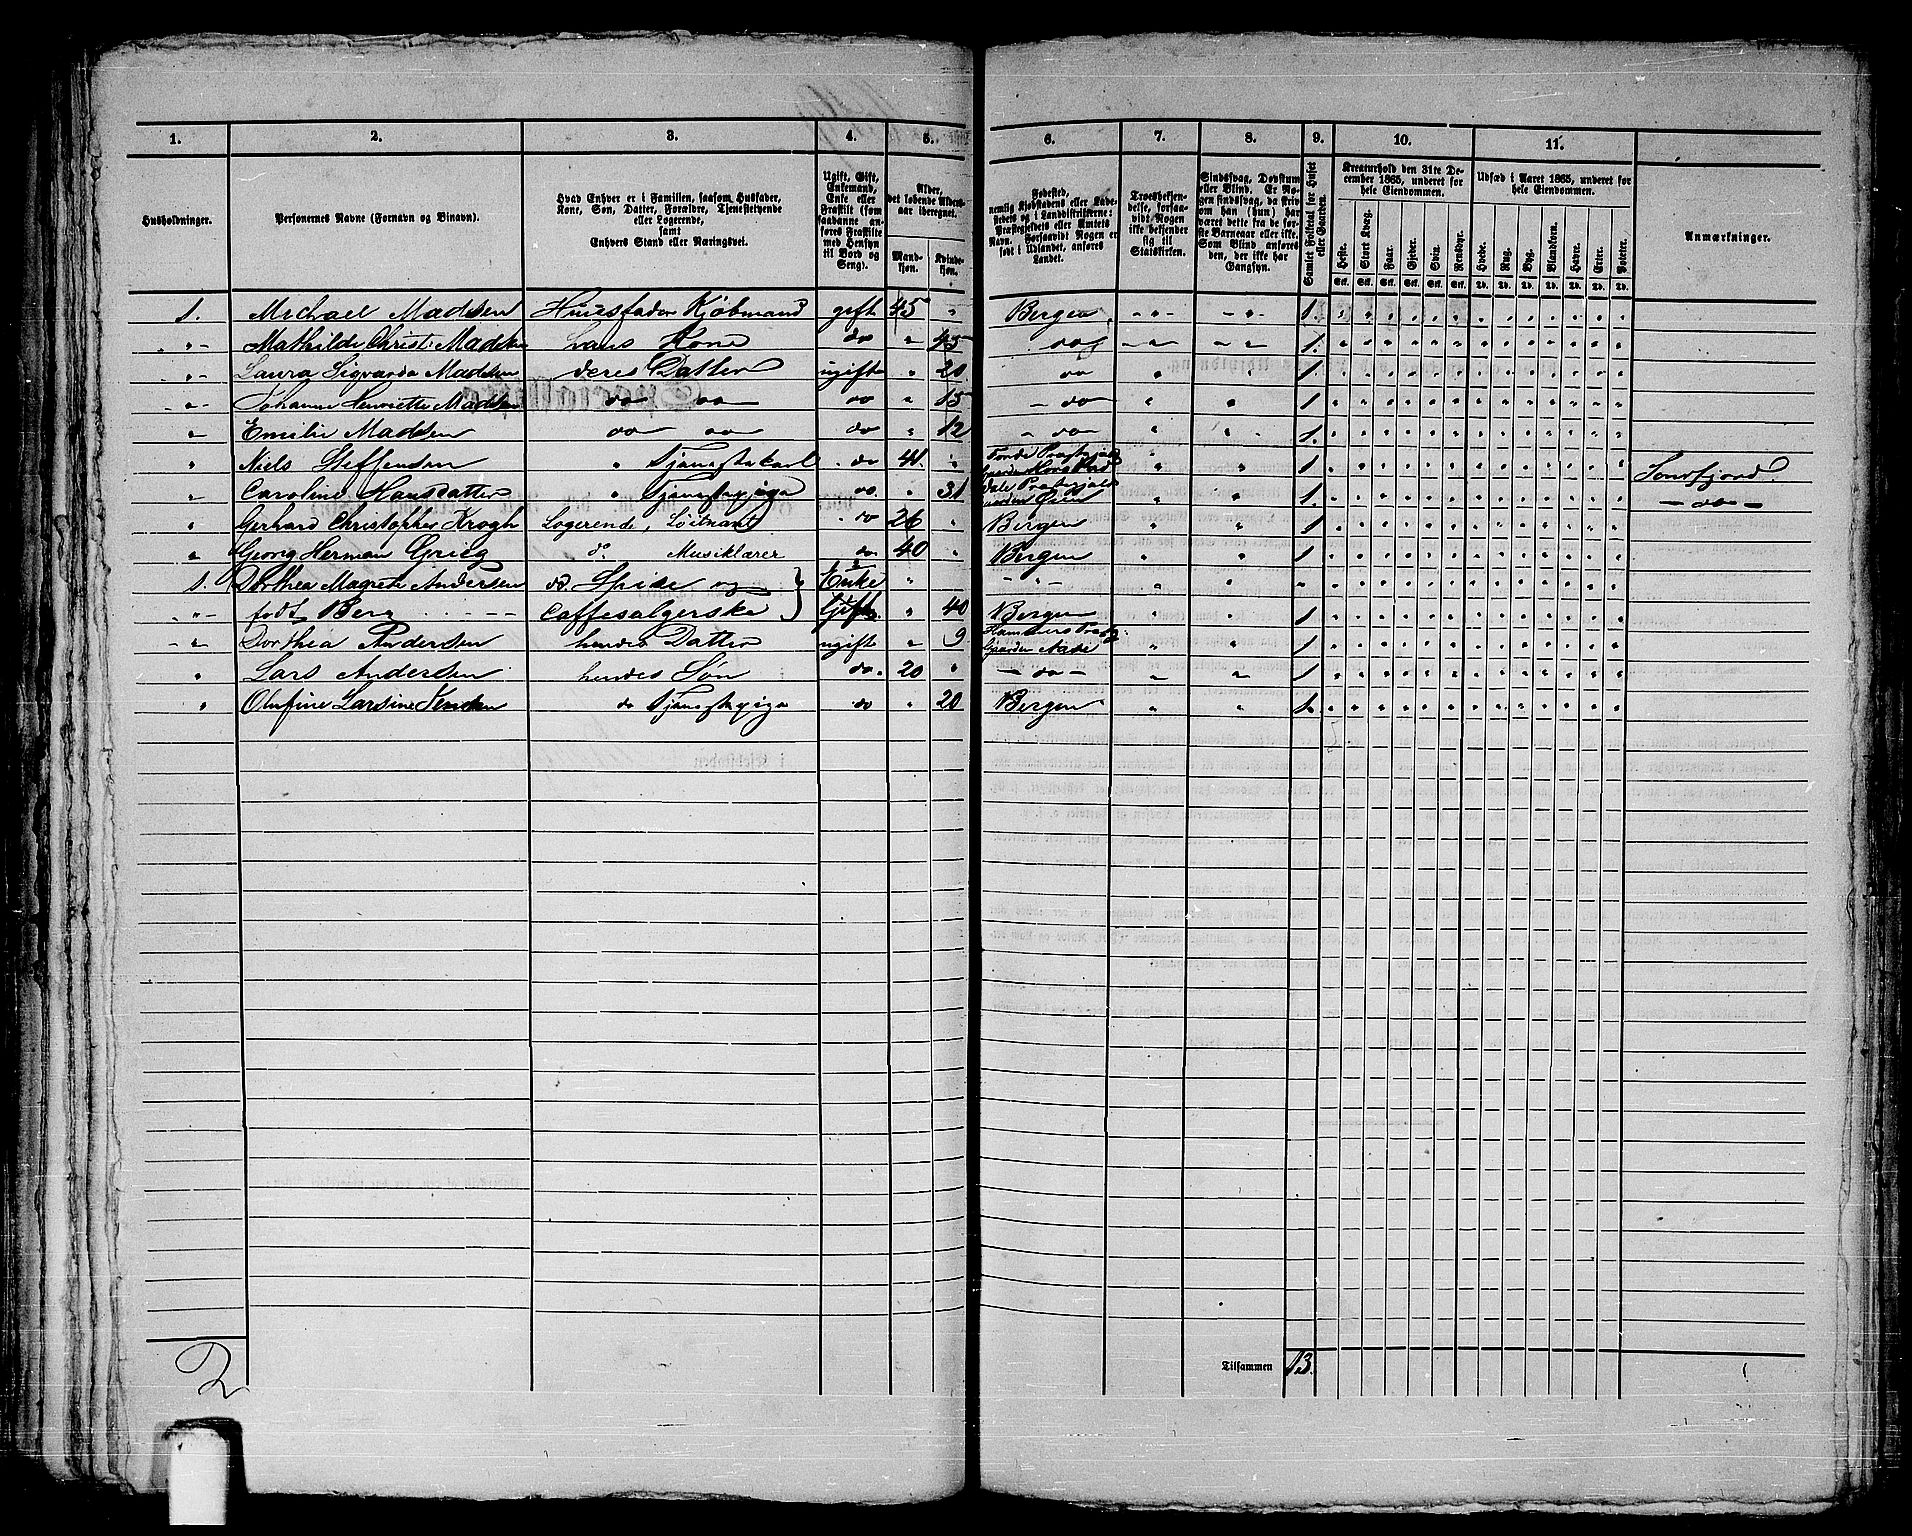 1. 2. 3. 4. 5. 6. 7. 8. 9. 10. 11.
Husholdninger.
Personernes Navne (Fornavn og Binavn).
Hvad Enhver er i Familien, saasom Husfader, Kone, Søn, Datter, Forældre, Tjenestetyende eller Logerende, samt Enhvers Stand eller Næringsvei.
Ugift, Gift, Enkemand, Enke eller Fraskilt (som saadanne anføres Fraskilte med Hensyn til Bord og Seng).
Alder, det løbende Aldersaar iberegnet.
Mandkjøn. Kvindekjøn.
Fødested, nemlig Kjøbstadens eller Ladestedets og i Landdistrikterne: Præstegjeldets eller Amtets Navn. Forsaavidt Nogen er født i Udlandet, anføres Landet.
Troesbekjendelse, forsaavidt Nogen ikke bekjender sig til Statskirken.
Sindssvag, Døvstum eller Blind. Er Nogen sindssvag, da skriv om han (hun) har været dette fra de første Barneaar eller ikke. Som Blind anføres den, der ikke har Gangsyn.
Samlet Folketal for Huset eller Gaarden.
Kreaturhold den 31te December 1865, underet for hele Eiendommen.
Heste. Stort Kvæg. Faar. Gjeder. Sviin. Rensdyr.
Udsæd i Aaret 1865, underet for hele Eiendommen.
Hvede. Rug. Byg. Blandkorn. Havre. Erter. Poteter.
Anmærkninger.
1. Michael Madsen Huusfader Kjøbmand gift 45 " Bergen 1.
" Mathilde Christi Madsen hans Kone do " 45 do 1.
" Laura Sigvarda Madsen deres Datter ugift " 20 do 1
" Johanne Henriette Madsen do do do " 15 do 1
" Emilie Madsen do do do " 12 do 1.
" Niels Steffensen " Tjenestekarl do 41. " 1 Søndfjord
" Caroline Hansdatter " Tjenestepige do. " 31 1. do
" Gerhard Christopher Krogh Logerende, Løitnant do 26 " Bergen 1
" Georg Herman Grieg do Musiklærer do 40 " Bergen 1
1. Dorthea Magrete Andersen do. Spise og Enke "
" født Berg Caffesælgerske Gift " 40 Bergen 1
" Dorthea Andersen hendes Datter ugift " 9 1
" Lars Andersen hendes Søn do. 20 " do 1
" Olufine Larsine Jensen do Tjenestepige do " 20 Bergen 1.
Tilsammen 13.
2